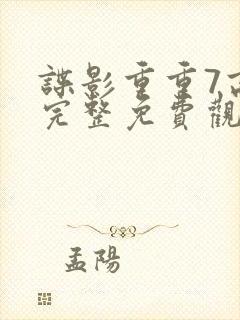 諜影重重7高
完整免費觀
孟陽